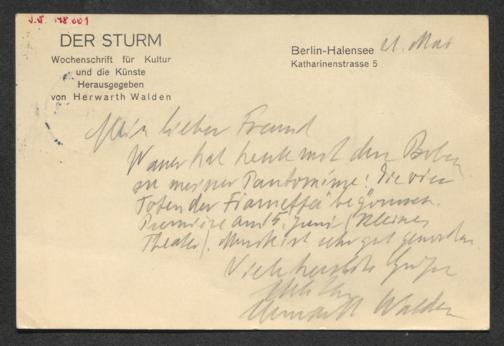 J.Nr. 148.001
DER STURM
Wochenschrift für Kultur
und die Künste
Herausgegeben
von Herwarth Walden
Berlin-Halensee 21. Mai
Katharinenstrasse 5
Mein lieber Freund
hat heute mit den
zu meiner Pantomime: Die vier
Toten der Fiametta begonnen.
Premiere am 15. Juni (Kleines
Theater). Musik ist sehr gut geworden.
Viele herzliche Grüße
Herwarth Walden